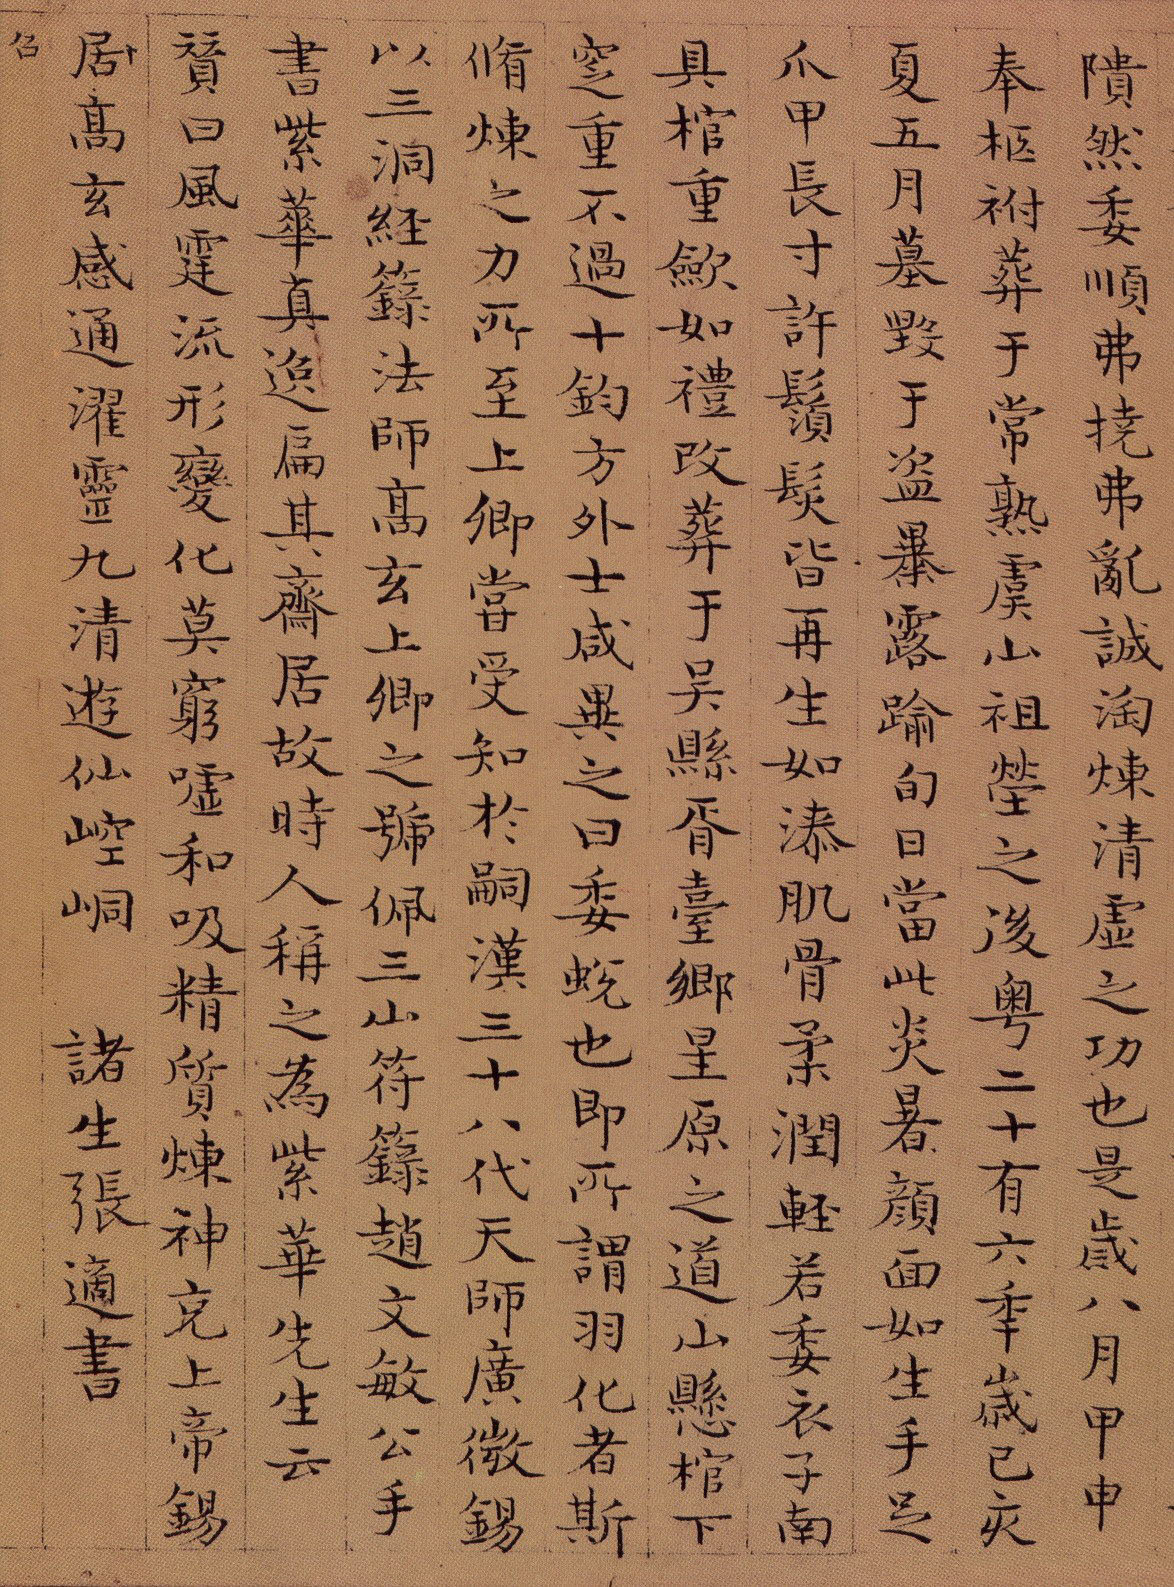 隤然委順弗撓弗亂誠淘煉清虛之功也是歲八月甲申
奉柩祔葬于常熟虞山祖塋之後粤二十有六年歲己亥
夏五月墓毀于盜暴露踰旬日當此炎暑顔面如生手足
爪甲長寸許鬚髮皆再生如漆肌骨柔潤輕若委衣子南
具棺重歛如禮改葬于吴縣胥臺鄉星原之道山懸棺下
窆重不過十鈞方外士咸異之曰委蛻也即所謂羽化者斯
脩煉之力所至上卿嘗受知於嗣漢三十八代天師廣微錫
以三洞経籙法師高玄上卿之號佩三山符籙趙文敏公手
書紫華真逸扁其齋居故時人稱之為紫華先生云
贊曰風霆流形變化莫窮嘘和吸精質煉神克上帝錫
居高玄感通濯靈九清遊仙崆峒 諸生張適書
召